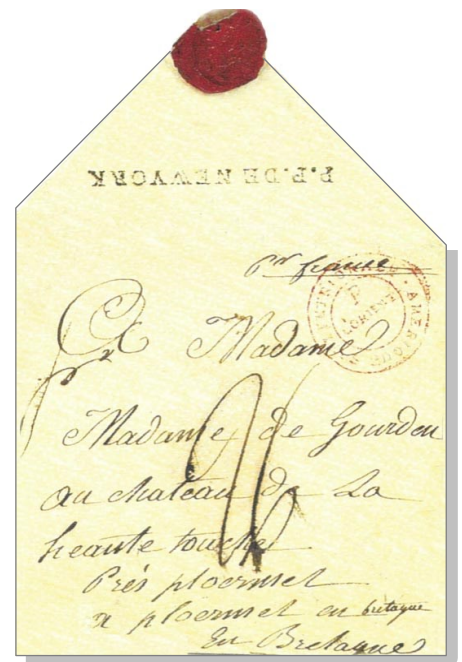 P.P.DE NEWYORK
pr france
L'ORIENT
AMERIQUE
A Madame
Madame de Gourden
au chateau de La
heaute touche
Près ploermel
a ploermel en bretagne
En Bretagne
26